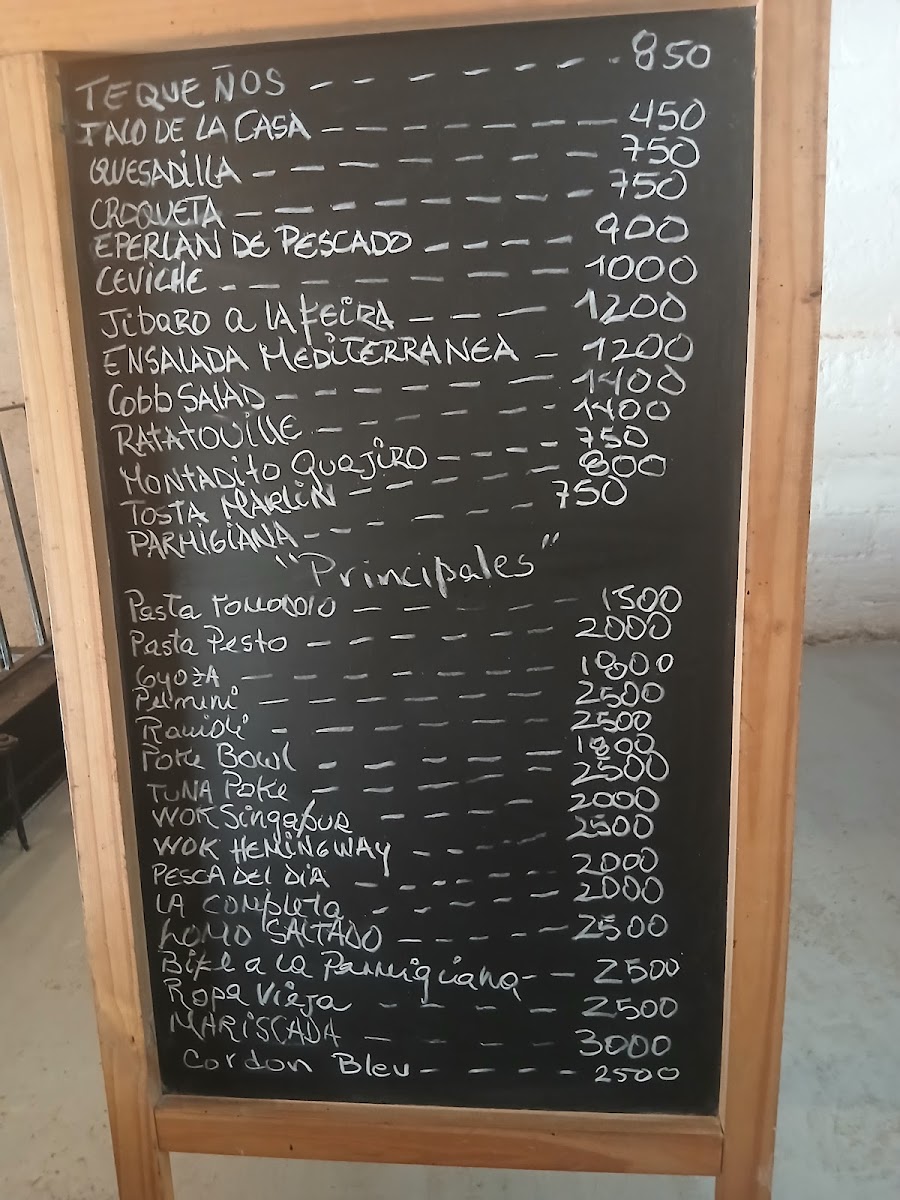 TEQUEÑOS - - - - - - - 850
TACO DE LA CASA - - - - - - - 450
QUESADILLA - - - - - - - 750
CROQUETA - - - - - - - - 750
EPERLAN DE PESCADO - - - - 900
CEVICHE - - - - - - - - 1000
Jibaro a la FEIRA - - - 1200
ENSALADA MEDITERRANEA - 1200
Cobb SALAD - - - - - - - 1400
RATATOUILLE - - - - - - 1400
MONTADITO GUAJIRO - - - - 750
TOSTA MARLIN - - - - - 800
PARMIGIANA - - - - - - 750
"Principales"
Pasta POMODORO - - - - - 1500
Pasta Pesto - - - - - - 2000
GYOZA - - - - - - - 1800
Pelmini - - - - - - - 2500
Ravioli - - - - - - - 2500
Poke Bowl - - - - - - 1800
TUNA Poke - - - - - - 2500
WOK Singapur - - - - 2000
WOK HEMINGWAY - - - - 2500
PESCA DEL DIA - - - - - 2000
LA completa - - - - - 2000
LOMO SALTADO - - - - - 2500
Bife a la Parmigiana - - 2500
Ropa Vieja - - - - 2500
MARISCADA - - - - 3000
Cordon Bleu - - - - 2500